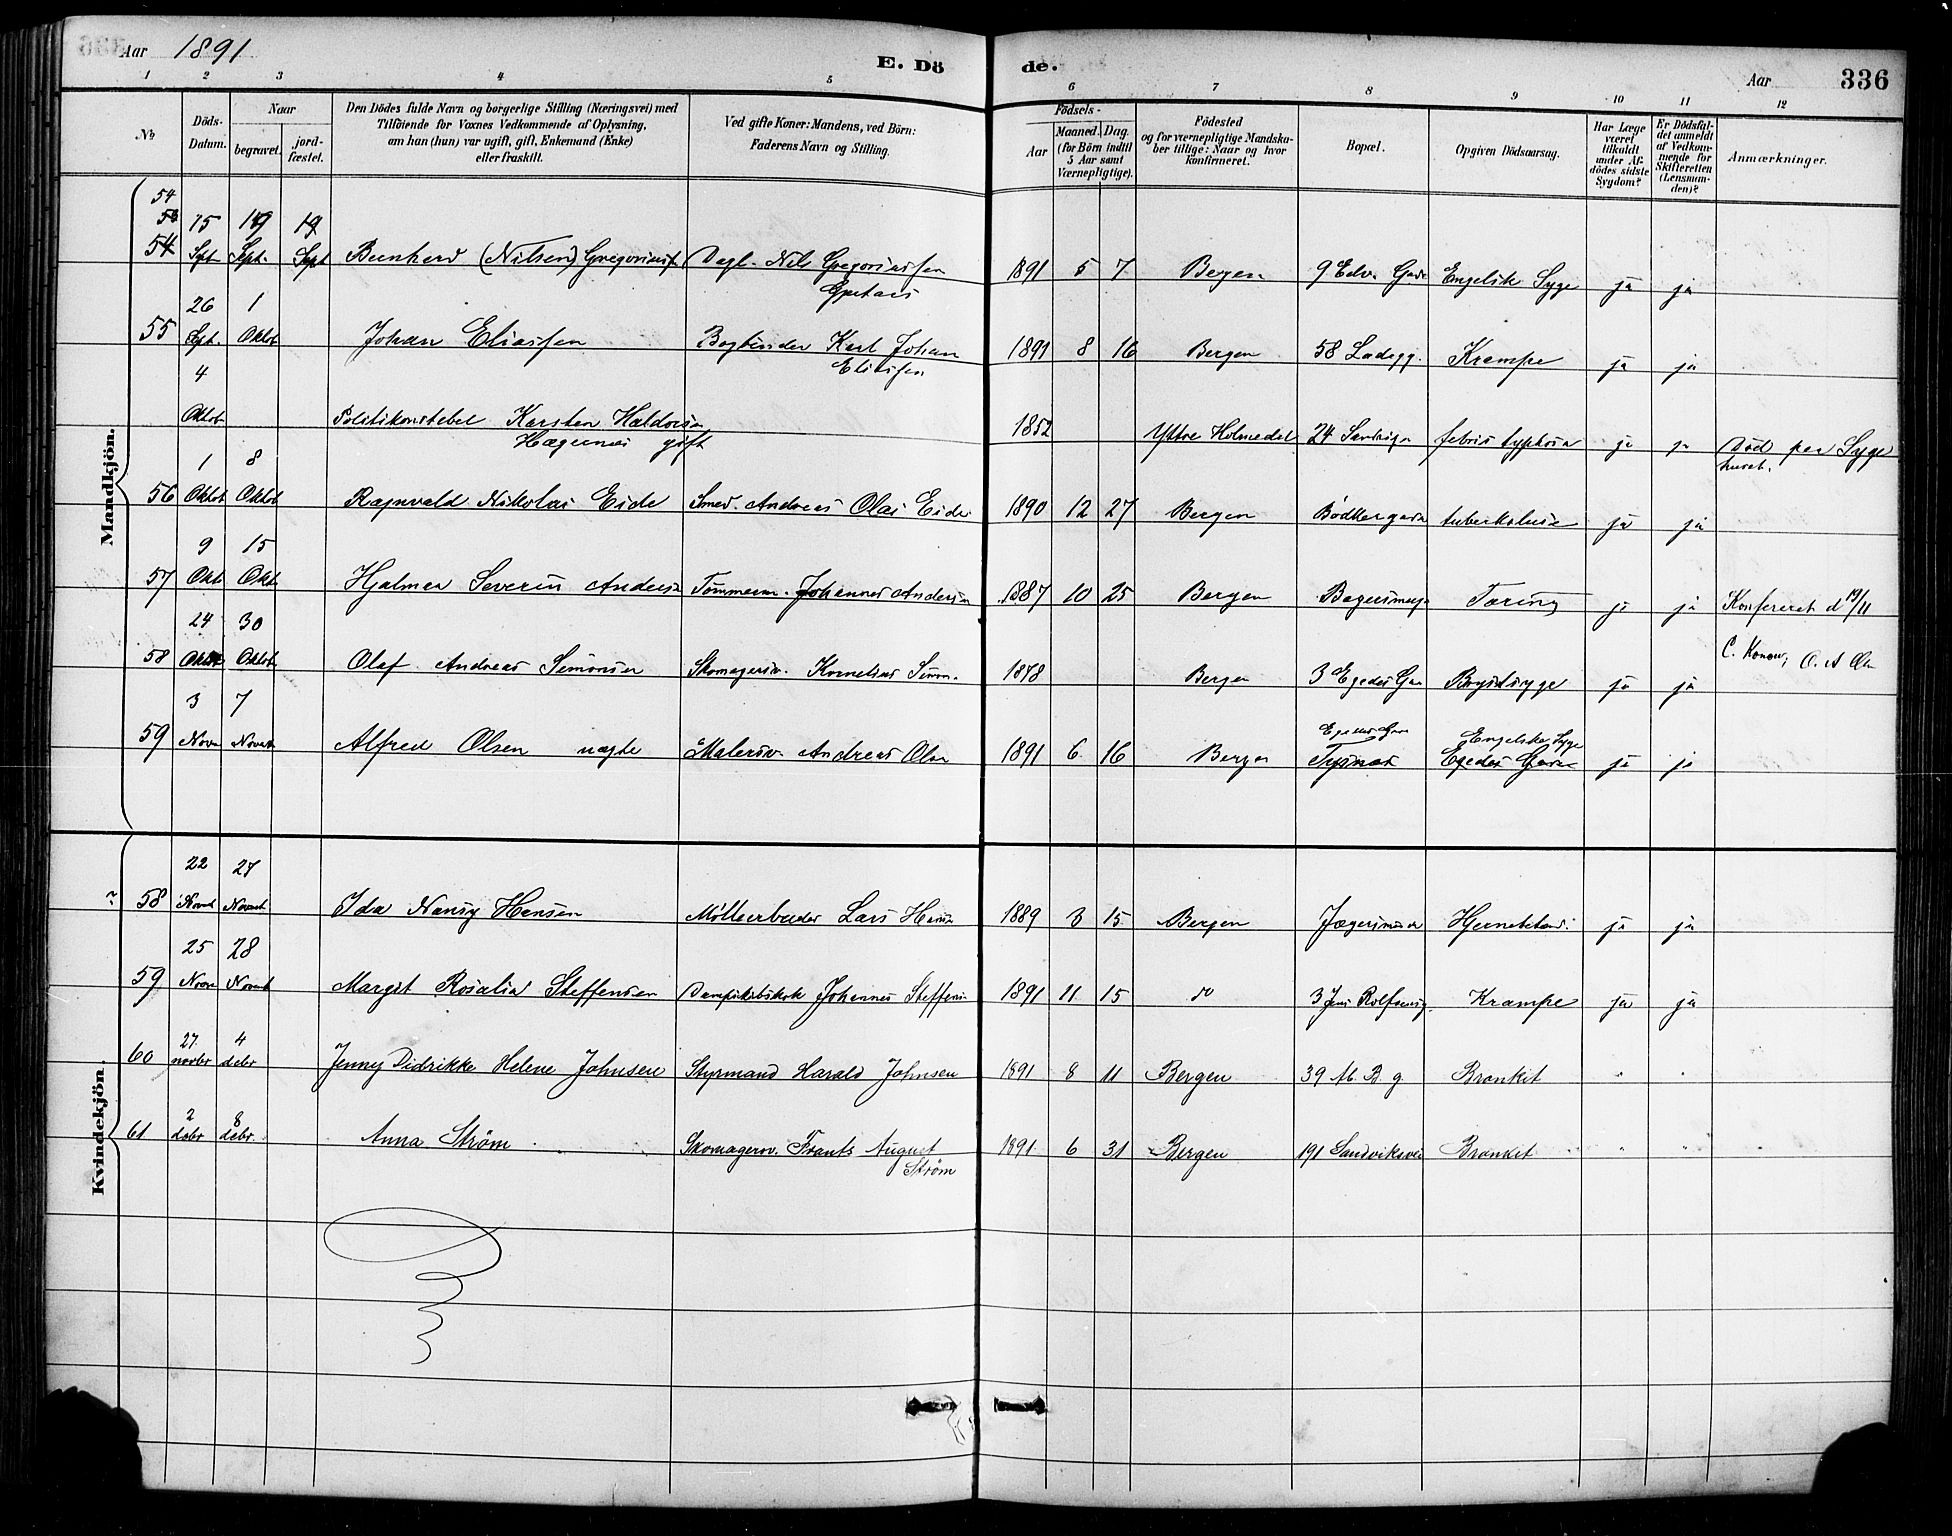 Aar 1891
E. Dö
de.
Aar
336
1 2 3 4 5 6 7 8 9 10 11 12
No
Döds-
Datum.
Naar
begravet.
jord-
fæstet.
Den Dödes fulde Navn og borgerlige Stilling (Næringsvei) med
Tilföiende for Voxnes Vedkommende af Oplysning,
om han (hun) var ugift, gift, Enkemand (Enke)
eller fraskilt.
Ved gifte Koner: Mandens, ved Börn:
Faderens Navn og Stilling.
Födsels-
Aar
Maaned. Dag.
(for Börn indtil
5 Aar samt
Værnepligtige).
Födested
og for værnepligtige Mandska-
ber tillige: Naar og hvor
konfirmeret.
Bopæl.
Opgiven Dödsaarsag.
Har Læge
været
tilkaldt
under Af-
dödes sidste
Sygdom?
Er Dödsfal-
det anmeldt
af Vedkom-
mende for
Skifteretten
(Lensman-
den)?
Anmærkninger.
Mandkjön.
54
53 15 19 19
54 Sept. Sept. Sept (Nilsen) Dagl. Nils Gregoriussen 1891 5 7 Bergen 9 Engelsk Syge ja ja
26 1
55 Sept. Oktob Johan Eliassen Bogbinder Karl Johan 1891 8 16 Bergen 58 Ladegg. Krampe ja ja
Eliassen
4
Oktob Politikonstabel Karsten Haldorsen 1852 Yttre Holmedal 24 febris typhosa ja ja Död paa Syge
gift huset.
1 8
56 Oktob Oktob Ragnvald Nikolai Eide Smed. Andreas Olai Eide 1890 12 27 Bergen Bödkergaden tuberkulose ja ja
9 15
57 Okt Okt Hjalmar Severin Anders Tömmerm. Johannes Andersen 1887 10 25 Bergen Tæring ja ja Konfereret d 19/11
24 30 C. Konow, O. A Olsen
58 Oktob Oktob Olaf Andreas Simonsen Skomagersv. Kornelius Simon. 1878 Bergen 3 Egedes Gade Brystsyge ja ja
3 7 Egedes Gade Engelske Syge
59 Novr Novbr Alfred Olsen uægte Malersv. Andreas Olsen 1891 6 16 Bergen Tysnæs Egedes Gade ja ja
Kvindekjön
22 27
58 Novb Novemb Ida Nansy Hansen Möllearbeider Lars Hansen 1889 3 15 Bergen Hjernebetænd. ja ja
25 28
59 Novr Novemb Margit Rosalia Steffensen Dampskibskok Johannes Steffens 1891 11 15 do 3 Jens Rolfsensg. Krampe ja ja
27 4
60 novbr debr Jenny Didrikke Helene Johnsen Styrmand Harald Johnsen 1891 8 11 Bergen 39 M. B. g. Bronkit " "
2 8
61 debr debr. Anna Ström Skomagersv. Frants August 1891 6 31 Bergen 191 Sandviksvei Bronkit " "
Ström